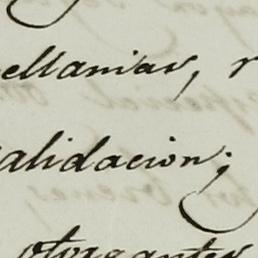 ellanias, r
alidacion;
otorgantes